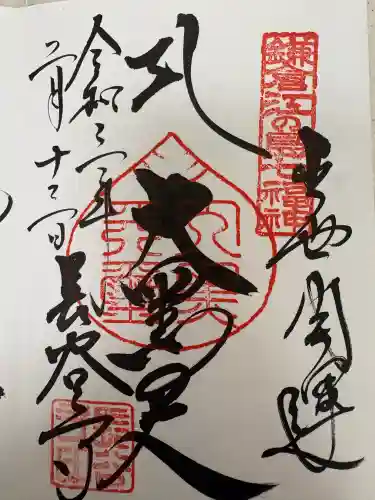 鎌倉江の島七福神
出世開運
大黒天
令和三年
二月十二日
長谷寺